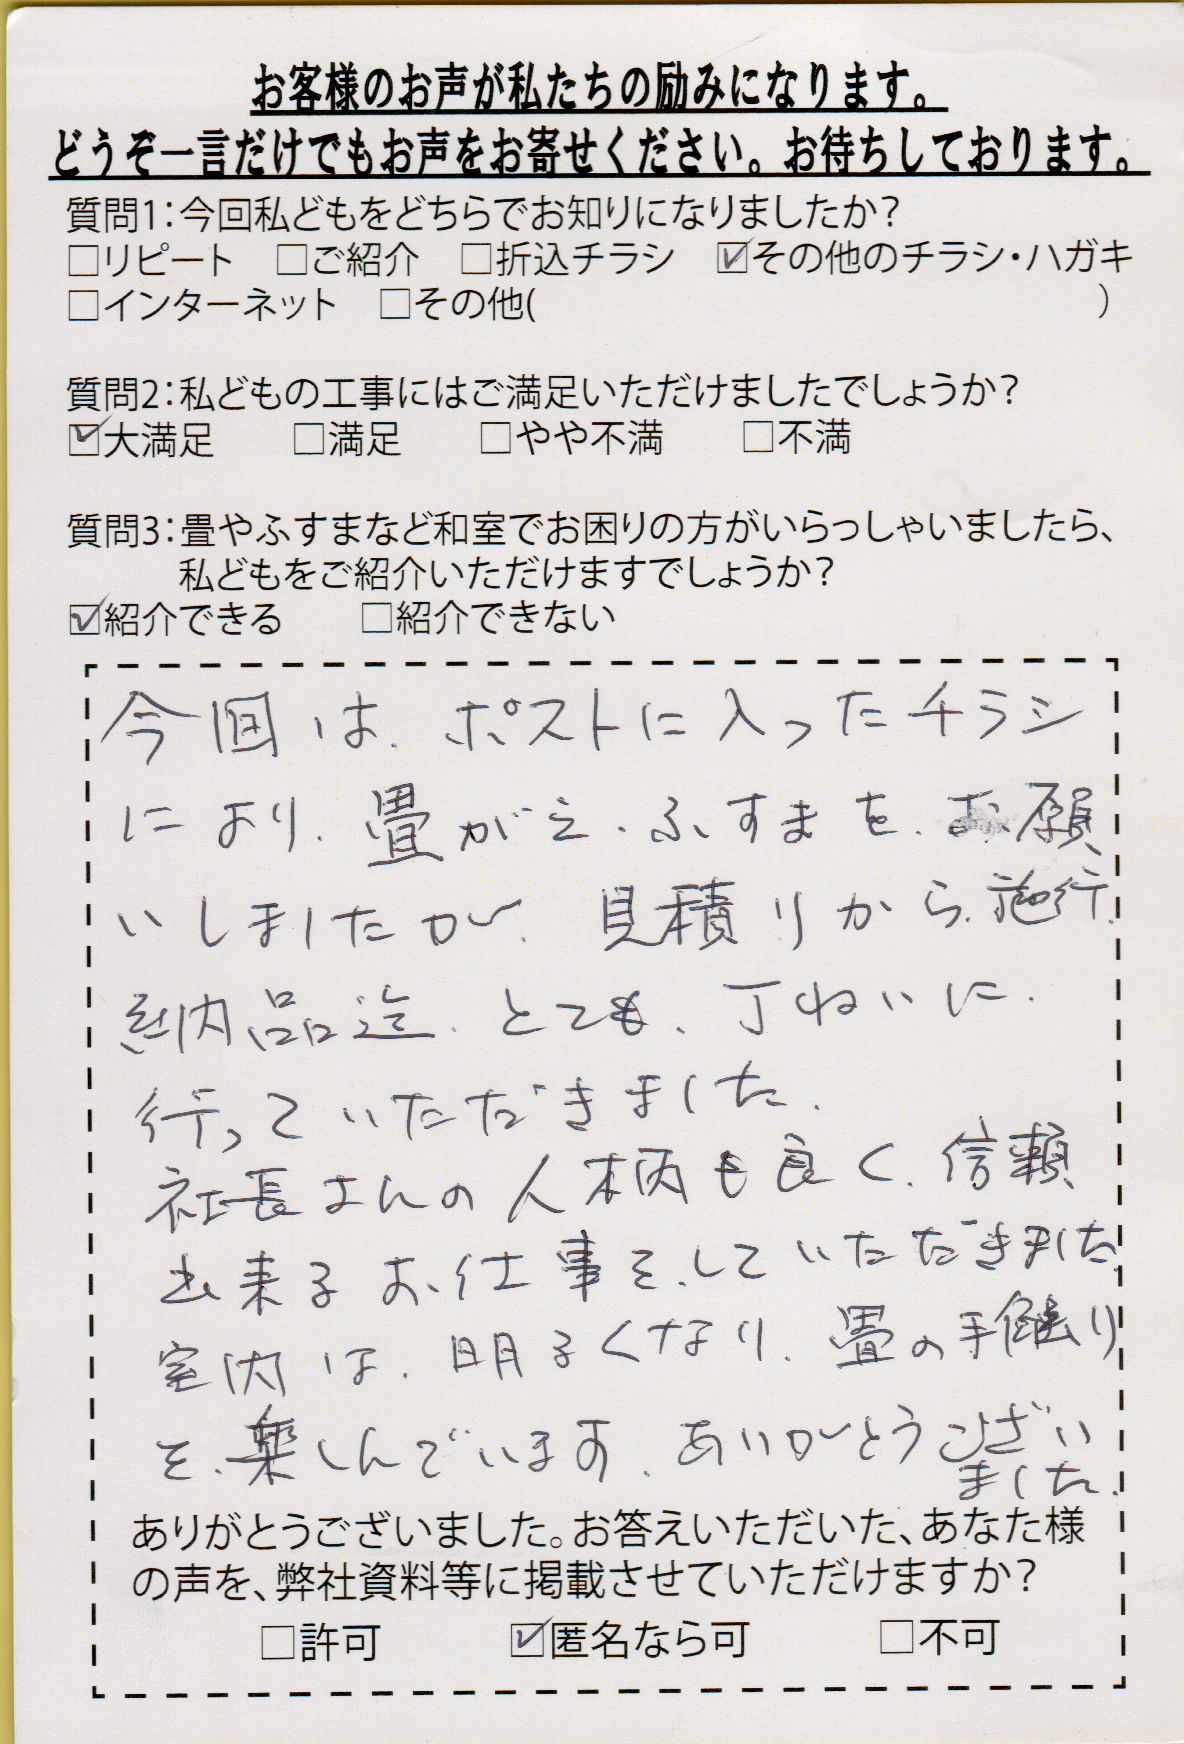 お客様のお声が私たちの励みになります。
どうぞ一言だけでもお声をお寄せください。お待ちしております。
質問1：今回私どもをどちらでお知りになりましたか？
□リピート　□ご紹介　□折込チラシ　☑その他のチラシ・ハガキ
□インターネット　□その他(　　　　　　　　　　　　　　　)
質問2：私どもの工事にはご満足いただけましたでしょうか？
☑大満足　□満足　□やや不満　□不満
質問3：畳やふすまなど和室でお困りの方がいらっしゃいましたら、
私どもをご紹介いただけますでしょうか？
☑紹介できる　□紹介できない
今回は、ポストに入ったチラシ
により、畳がえ、ふすまを、お願
いしましたが、見積りから、施行、
納品迄、とても、丁ねいに、
行っていただきました。
社長さんの人柄も良く、信頼
出来るお仕事を、していただきました。
室内は、明るくなり、畳の手触り
を、楽しんでいます、ありがとうござい
ました。
ありがとうございました。お答えいただいた、あなた様
の声を、弊社資料等に掲載させていただけますか？
□許可　☑匿名なら可　□不可